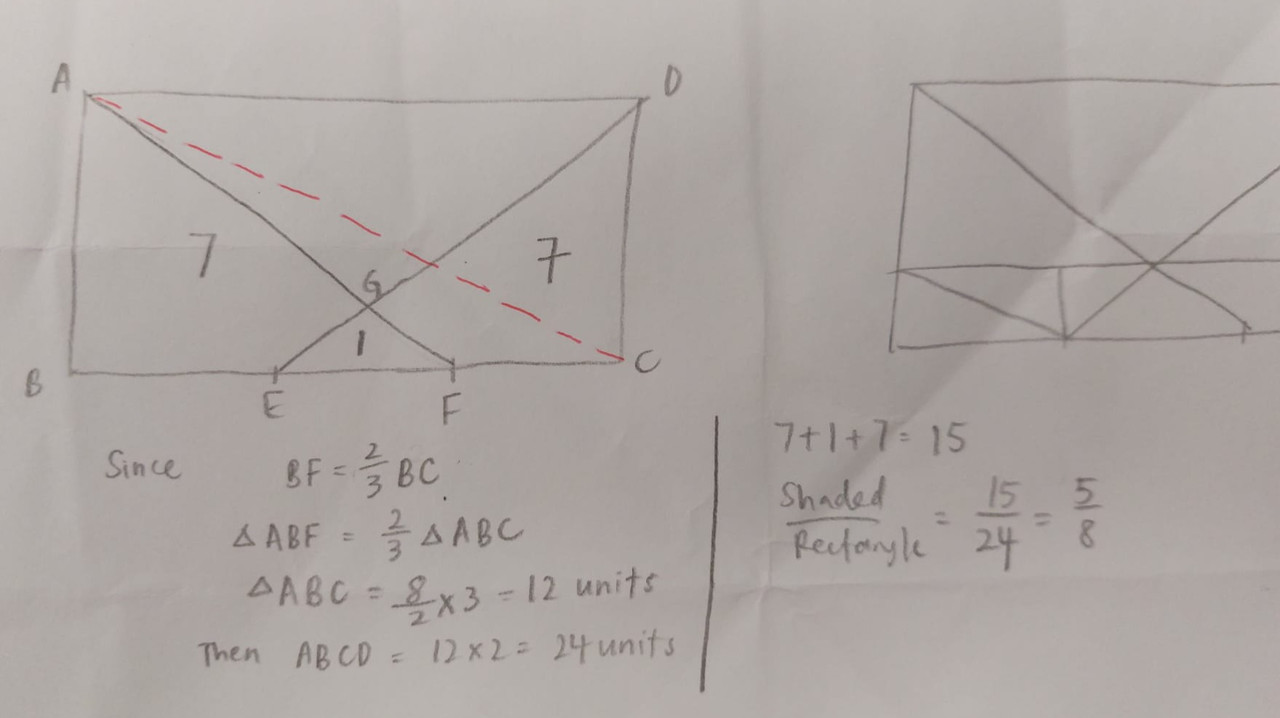 A
D
7
7
G
1
B
C
E
F
Since BF = 2/3 BC.
△ABF = 2/3 △ABC
△ABC = 8/2 × 3 = 12 units
Then ABCD = 12 × 2 = 24 units
7+1+7 = 15
Shaded/Rectangle = 15/24 = 5/8